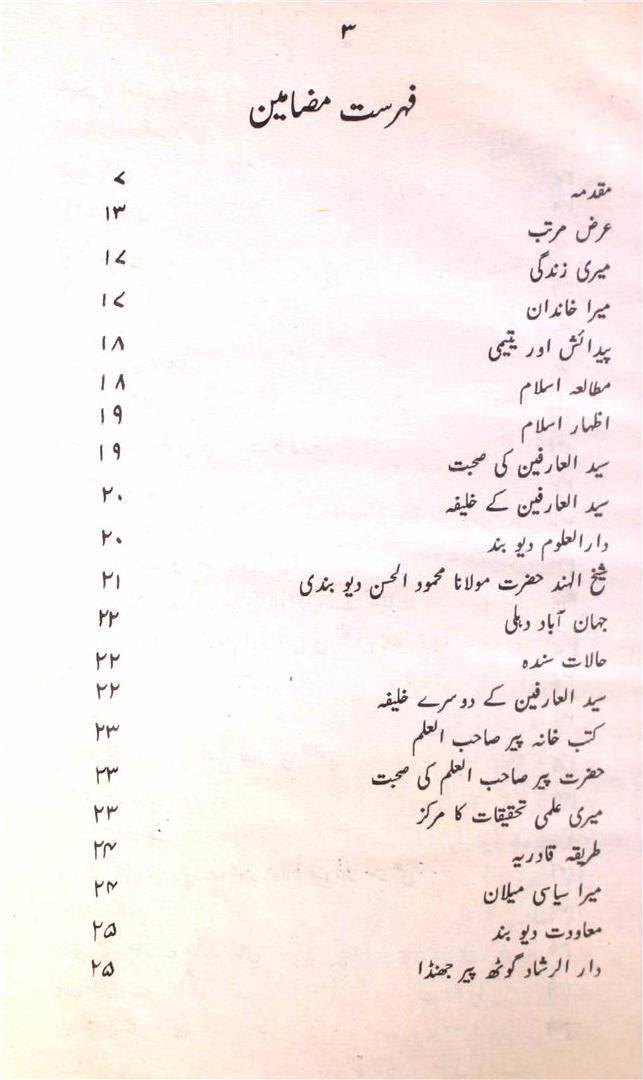 ۳
فہرست مضامین
مقدمہ ۷
عرض مرتب ۱۳
میری زندگی ۱۷
میرا خاندان ۱۷
پیدائش اور یتیمی ۱۸
مطالعہ اسلام ۱۸
اظہار اسلام ۱۹
سید العارفین کی صحبت ۱۹
سید العارفین کے خلیفہ ۲۰
دارالعلوم دیو بند ۲۰
شیخ الہند حضرت مولانا محمود الحسن دیو بندی ۲۱
جہان آباد دہلی ۲۲
حالات سندہ ۲۲
سید العارفین کے دوسرے خلیفہ ۲۲
کتب خانہ پیر صاحب العلم ۲۳
حضرت پیر صاحب العلم کی صحبت ۲۳
میری علمی تحقیقات کا مرکز ۲۳
طریقہ قادریہ ۲۴
میرا سیاسی میلان ۲۴
معاودت دیو بند ۲۵
دار الرشاد گوٹھ پیر جھنڈا ۲۵